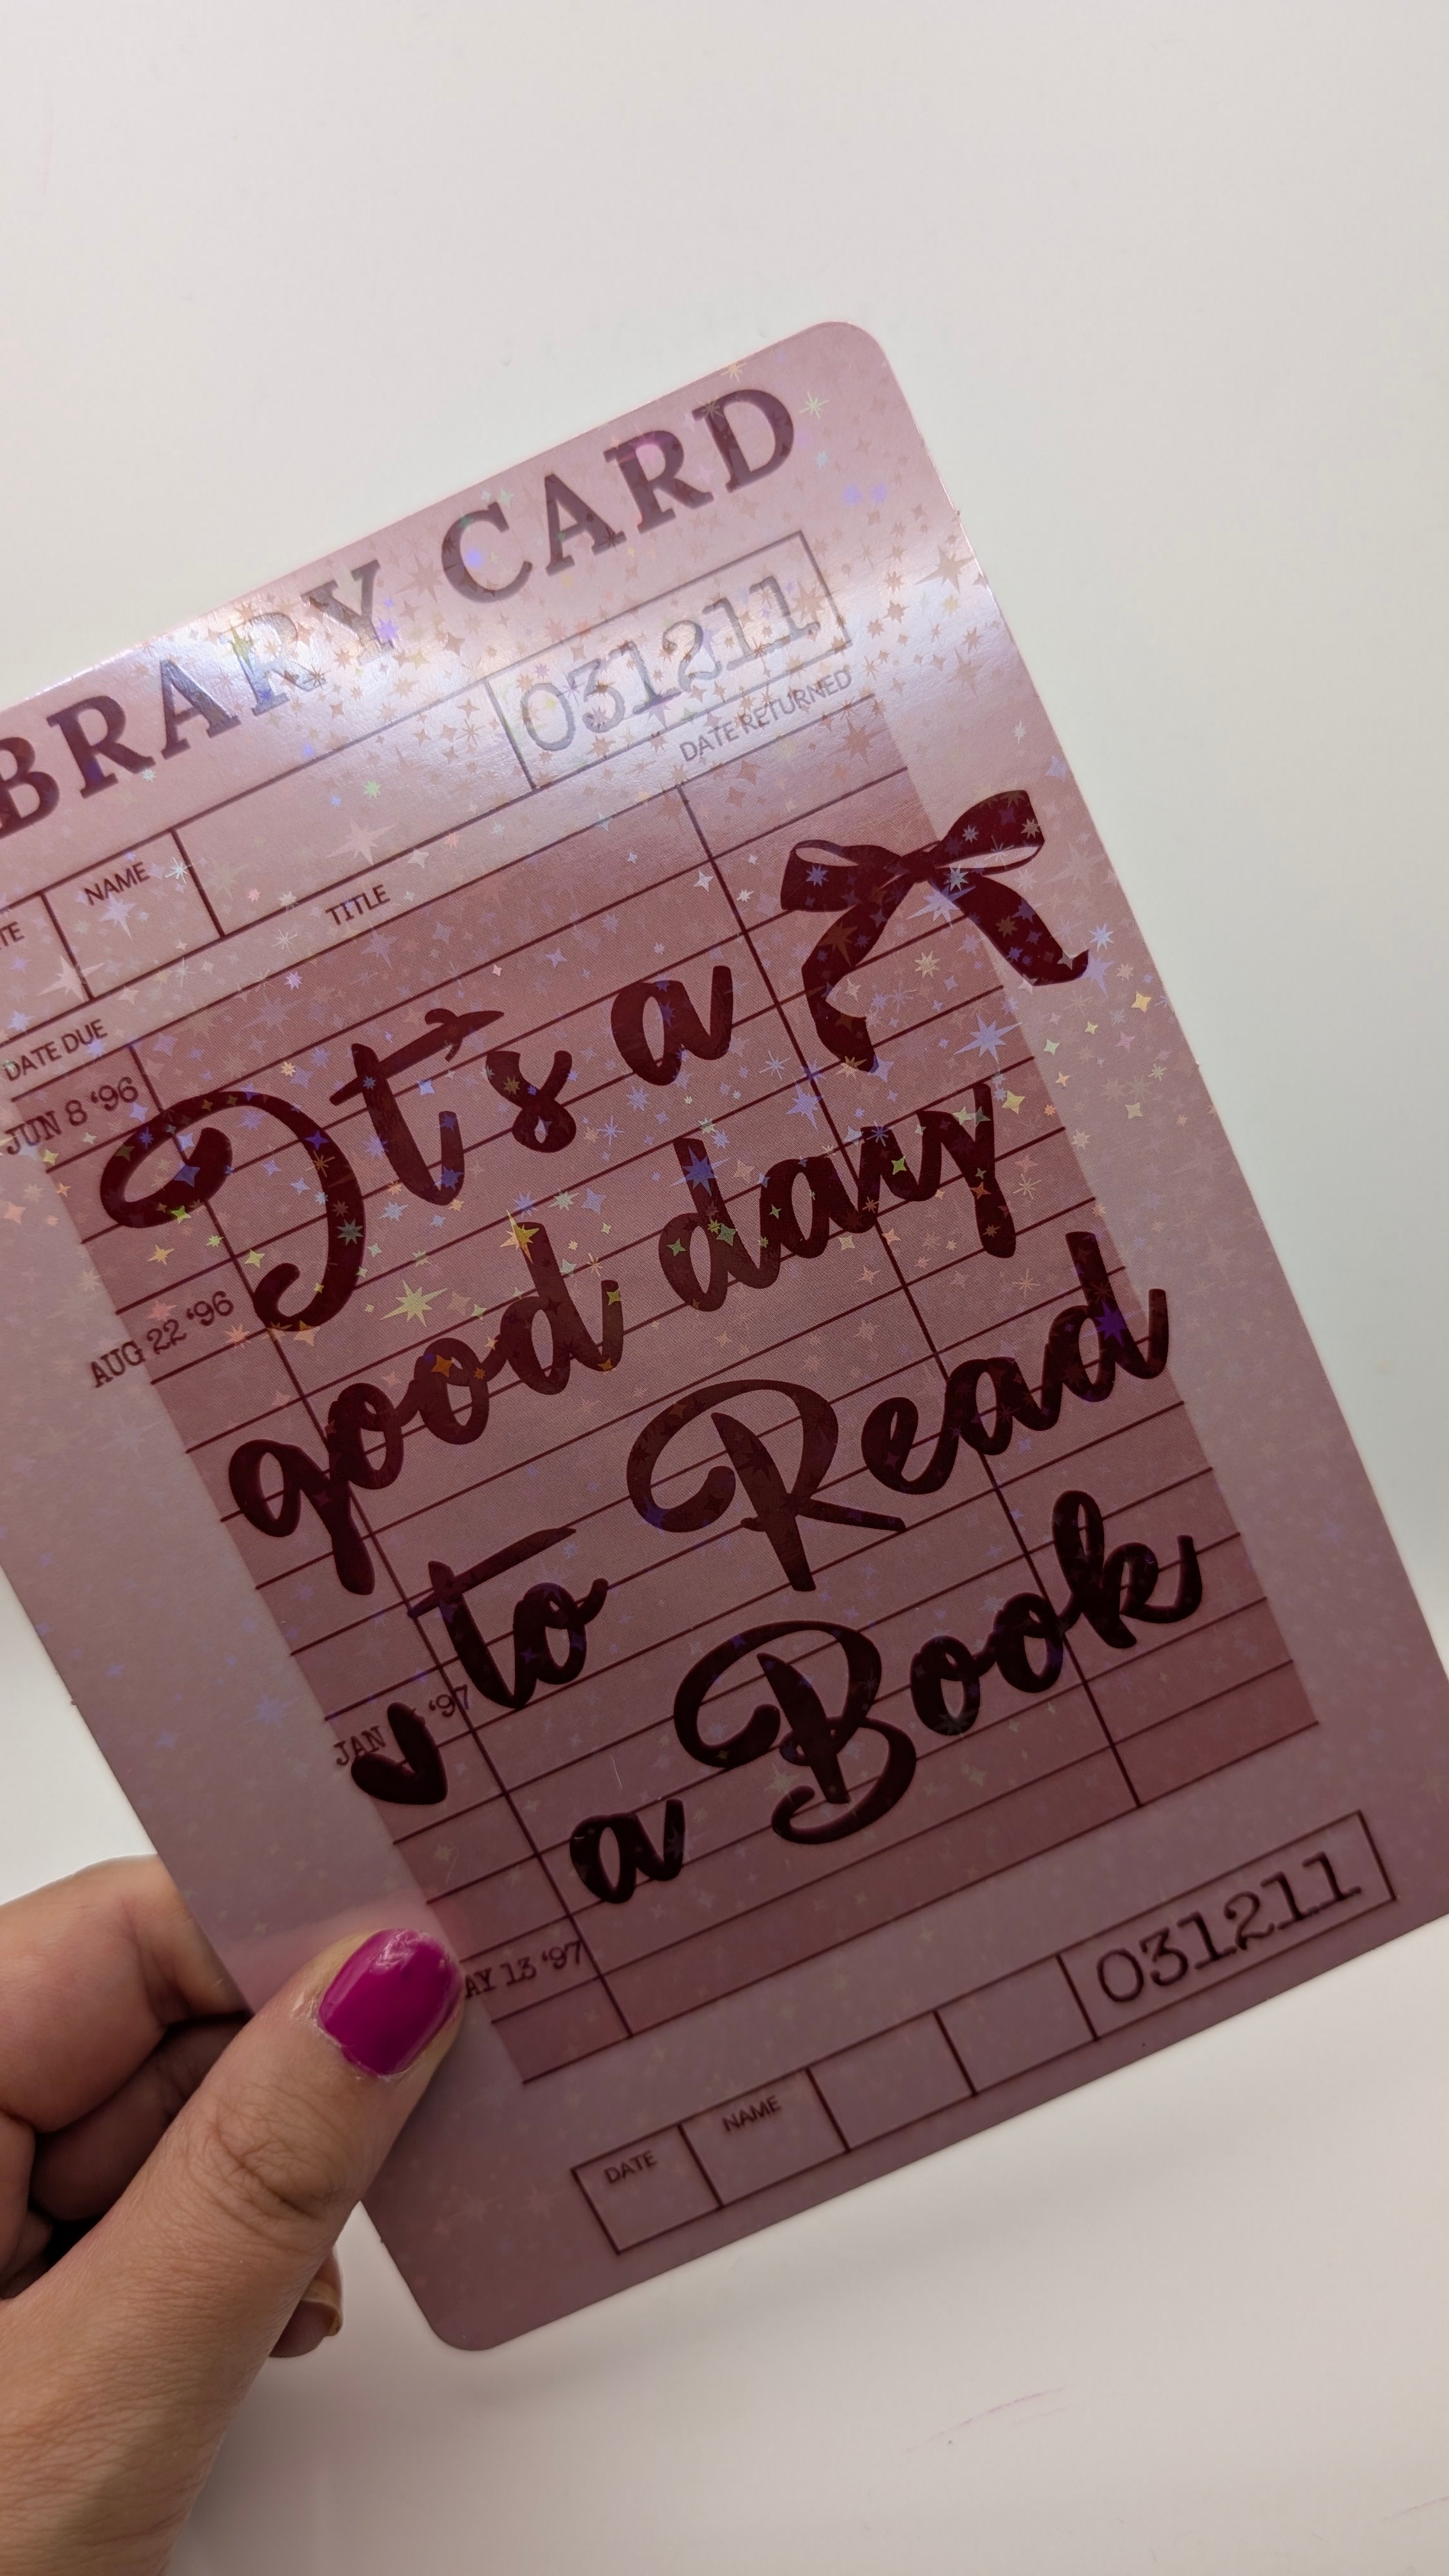 BRARY CARD
031211
TE NAME
TITLE
DATE RETURNED
DATE DUE
JUN 8 '96
It's a
good day
AUG 22 '96
to Read
JAN '97
a Book
AY 13 '97
031211
DATE NAME